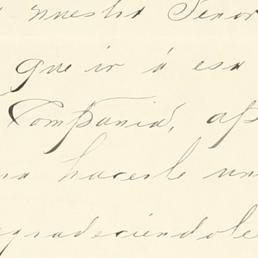 nuestro Señor
que ir á esa
Compañia, ap
na hacerle un
agradeciéndole